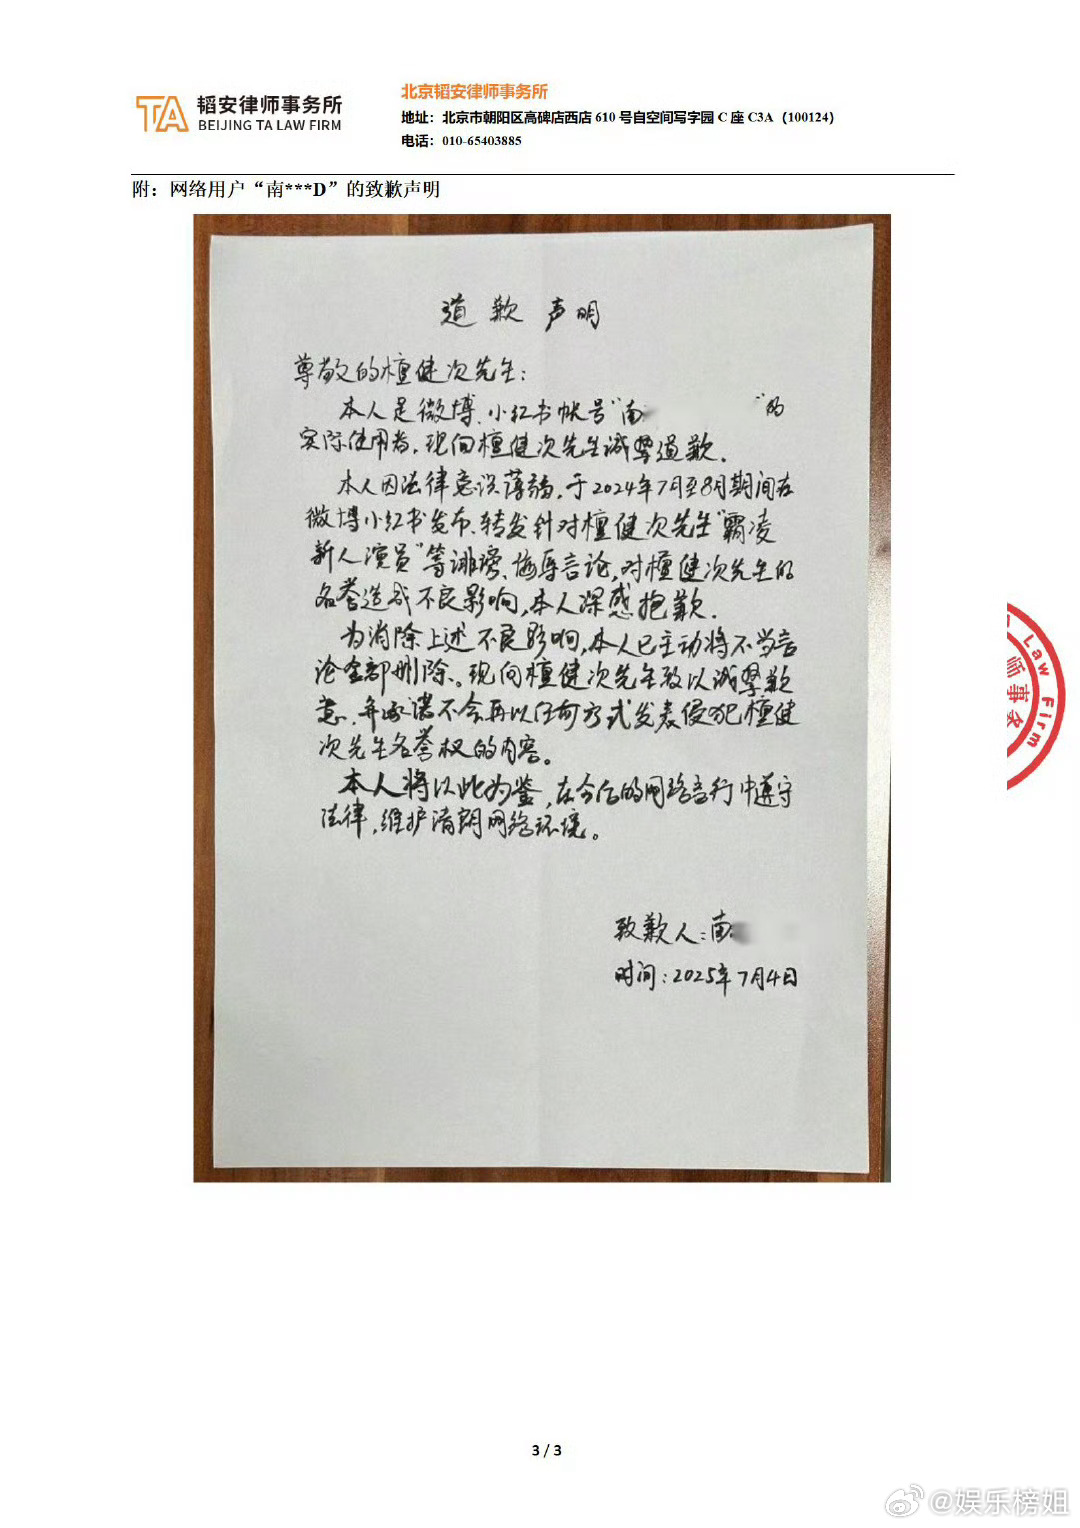 TA 韬安律师事务所
BEIJING TA LAW FIRM
北京韬安律师事务所
地址：北京市朝阳区高碑店西店 610 号自空间写字园 C 座 C3A（100124）
电话：010-65403885
附：网络用户“南***D”的致歉声明
道歉声明
尊敬的檀健次先生：
本人是微博、小红书帐号“南 ”的
实际使用者，现向檀健次先生诚挚道歉。
本人因法律意识薄弱，于2024年7月至8月期间在
微博小红书发布、转发针对檀健次先生“霸凌
新人演员”等诽谤、侮辱言论，对檀健次先生的
名誉造成不良影响，本人深感抱歉.
为消除上述不良影响，本人已主动将不当言
论全部删除。现向檀健次先生致以诚挚歉
意，并承诺不会再以任何方式发表侵犯檀健
次先生名誉权的内容。
本人将以此为鉴，在今后的网络言行中遵守
法律，维护清朗网络环境。
致歉人：南
时间：2025年7月4日
Law Firm
师事务
3 / 3
@娱乐榜姐